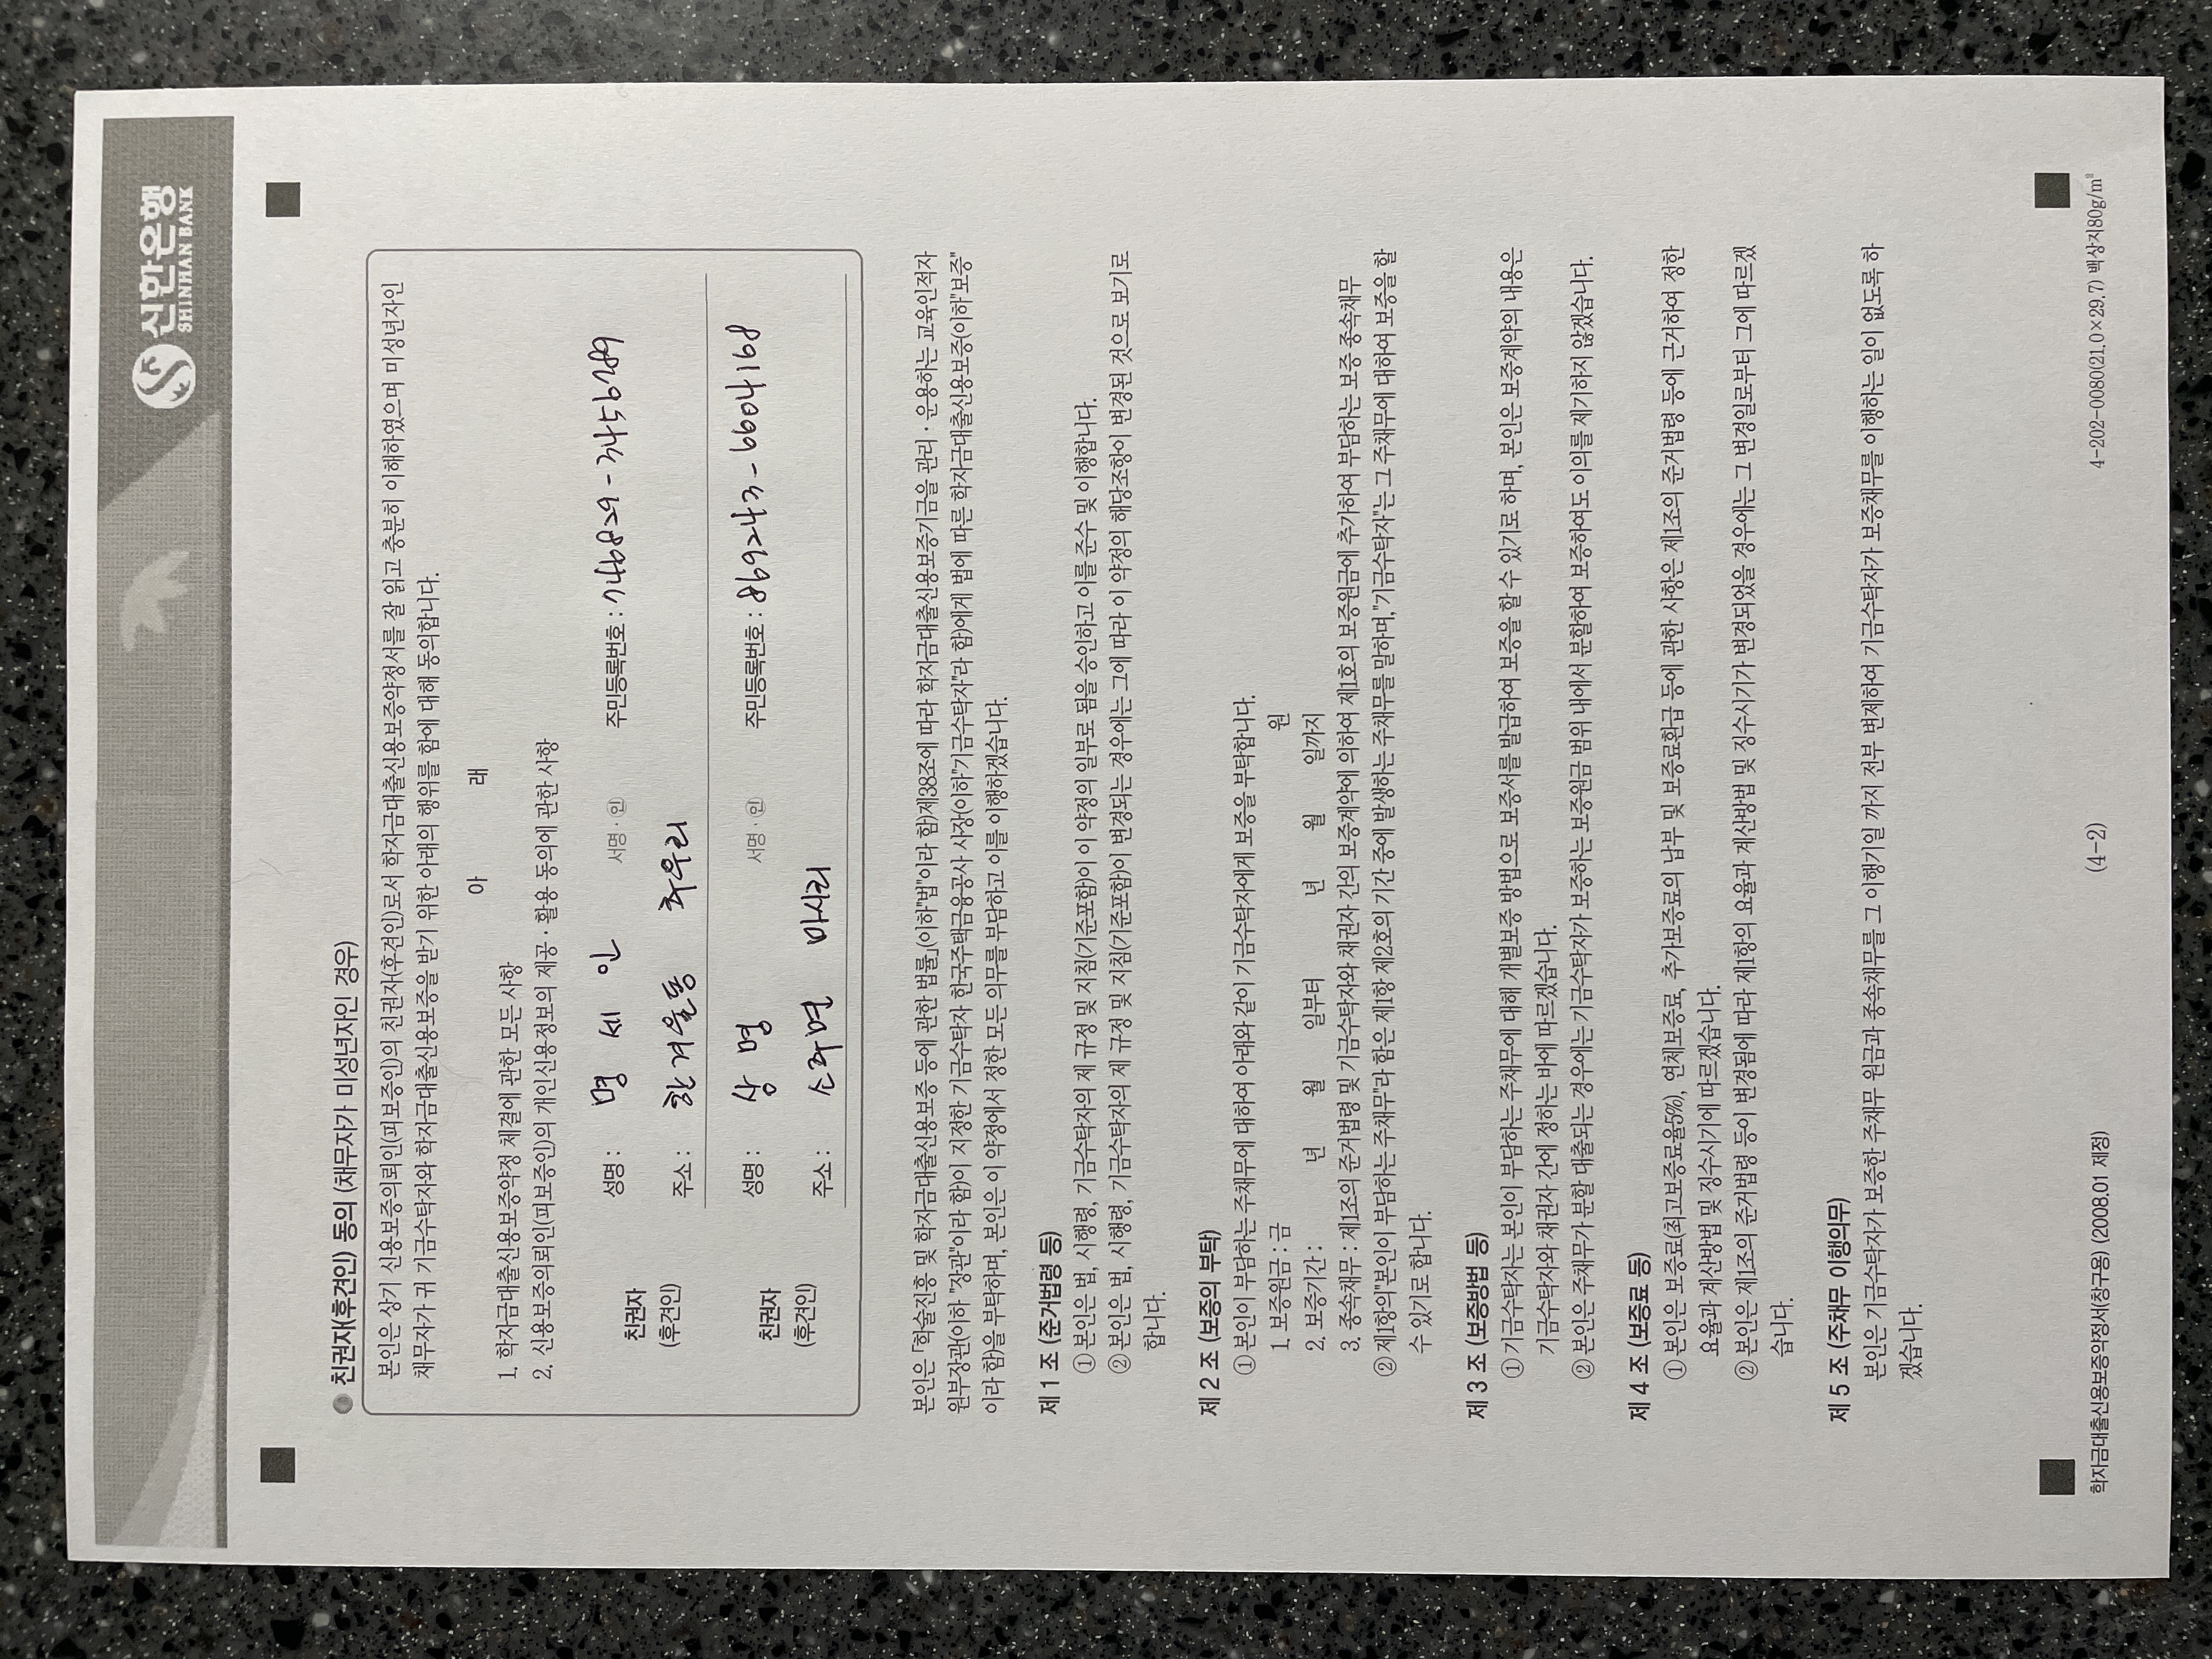 신한은행
SHINHAN BANK
친권자(후견인) 동의 (채무자가 미성년자인 경우)
본인은 상기 신용보증의뢰인(피보증인)의 친권자(후견인)로서 학자금대출신용보증약정서를 잘 읽고 충분히 이해하였으며 미성년자인
채무자가 귀 기금수탁자와 학자금대출신용보증을 받기 위한 아래의 행위를 함에 대해 동의합니다.
아 래
1. 학자금대출신용보증약정 체결에 관한 모든 사항
2. 신용보증의뢰인(피보증인)의 개인신용정보의 제공·활용 동의에 관한 사항
친권자
(후견인)
성명 : 명 세 인 서명·인 주민등록번호 : 746829-3456789
주소 : 한겨울동 추우리
친권자
(후견인)
성명 : 상 명 서명·인 주민등록번호 : 869243-6604168
주소 : 소주면 마시리
본인은 「학술진흥 및 학자금대출신용보증 등에 관한 법률」(이하"법"이라 함)제38조에 따라 학자금대출신용보증기금을 관리·운용하는 교육인적자
원부장관(이하 "장관"이라 함)이 지정한 기금수탁자 한국주택금융공사 사장(이하"기금수탁자"라 함)에게 법에 따른 학자금대출신용보증(이하"보증"
이라 함)을 부탁하며, 본인은 이 약정에서 정한 모든 의무를 부담하고 이를 이행하겠습니다.
제 1 조 (준거법령 등)
① 본인은 법, 시행령, 기금수탁자의 제 규정 및 지침(기준포함)이 이 약정의 일부로 됨을 승인하고 이를 준수 및 이행합니다.
② 본인은 법, 시행령, 기금수탁자의 제 규정 및 지침(기준포함)이 변경되는 경우에는 그에 따라 이 약정의 해당조항이 변경된 것으로 보기로
합니다.
제 2 조 (보증의 부탁)
① 본인이 부담하는 주채무에 대하여 아래와 같이 기금수탁자에게 보증을 부탁합니다.
1. 보증원금 : 금 원
2. 보증기간 : 년 월 일부터 년 월 일까지
3. 종속채무 : 제1조의 준거법령 및 기금수탁자와 채권자 간의 보증계약에 의하여 제1호의 보증원금에 추가하여 부담하는 보증 종속채무
② 제1항의"본인이 부담하는 주채무"라 함은 제1항 제2호의 기간 중에 발생하는 주채무를 말하며,"기금수탁자"는 그 주채무에 대하여 보증을 할
수 있기로 합니다.
제 3 조 (보증방법 등)
① 기금수탁자는 본인이 부담하는 주채무에 대해 개별보증 방법으로 보증서를 발급하여 보증을 할 수 있기로 하며, 본인은 보증계약의 내용은
기금수탁자와 채권자 간에 정하는 바에 따르겠습니다.
② 본인은 주채무가 분할 대출되는 경우에는 기금수탁자가 보증하는 보증원금 범위 내에서 분할하여 보증하여도 이의를 제기하지 않겠습니다.
제 4 조 (보증료 등)
① 본인은 보증료(최고보증료율5%), 연체보증료, 추가보증료의 납부 및 보증료환급 등에 관한 사항은 제1조의 준거법령 등에 근거하여 정한
요율과 계산방법 및 징수시기에 따르겠습니다.
② 본인은 제1조의 준거법령 등이 변경됨에 따라 제1항의 요율과 계산방법 및 징수시기가 변경되었을 경우에는 그 변경일로부터 그에 따르겠
습니다.
제 5 조 (주채무 이행의무)
본인은 기금수탁자가 보증한 주채무 원금과 종속채무를 그 이행기일 까지 전부 변제하여 기금수탁자가 보증채무를 이행하는 일이 없도록 하
겠습니다.
학자금대출신용보증약정서(창구용) (2008.01 제정) (4-2) 4-202-0080(21.0×29.7) 백상지80g/㎡